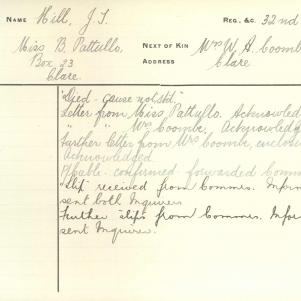 NAME Hill, J.T. REG. &C. 32nd
Miss B. Pattullo, NEXT OF KIN Mrs W. A. Coomb
Box 23 ADDRESS Clare
Clare.
"Died - cause not std"
Letter from Miss Pattullo. Acknowled
" " Mrs Coombe, Acknowledg
Further letter from Mrs Coombe, enclos
Acknowledged
Cable - confirmed forwarded Comm
"Slip received from Commrs. Inform
sent both Inquirers
Further slips from Commrs. Infor
sent Inquirer.